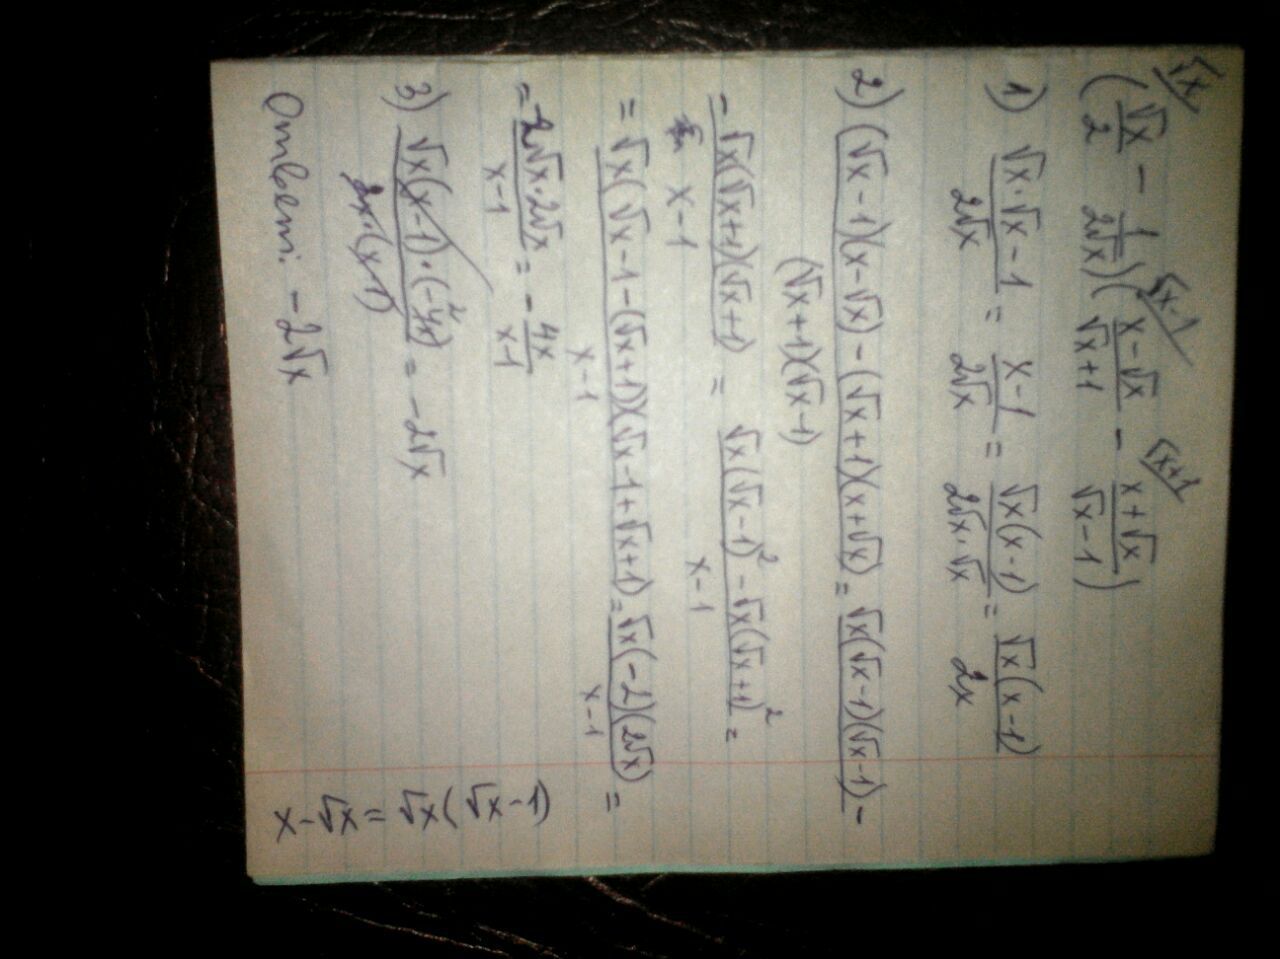 (√x/2 - 1/(2√x))((x-√x)/(√x+1) - (x+√x)/(√x-1))
√x √x-1 √x+1
1) (√x·√x-1)/(2√x) = (x-1)/(2√x) = (√x(x-1))/(2√x·√x) = (√x(x-1))/(2x)
2) ((√x-1)(x-√x)-(√x+1)(x+√x))/((√x+1)(√x-1)) = (√x(√x-1)(√x-1)-
-√x(√x+1)(√x+1))/(x-1) = (√x(√x-1)²-√x(√x+1)²)/(x-1) =
= (√x(√x-1-(√x+1)(√x-1+√x+1))/(x-1) = (√x(-2)(2√x))/(x-1) =
= (-2√x·2√x)/(x-1) = -4x/(x-1)
3) (√x(x-1)·(-4x))/(2x·(x-1)) = -2√x
2
Ответ: -2√x
x-√x=√x(√x-1)